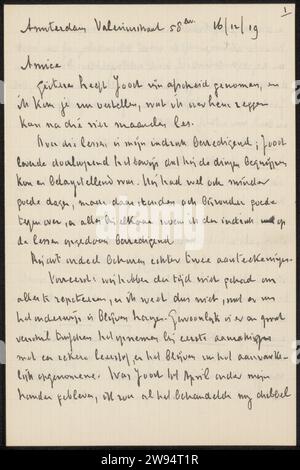 1
Amsterdam Valeriusstraat 58 huis. 16/12/19
Amice
Gisteren heeft Joost mijn afscheid genomen, en
ik kan je nu vertellen, wat ik over hem zeggen
kan na die vier maanden les.
Over die lessen is mijn indruk bevredigend; Joost
leverde doorlopend het bewijs dat hij de dingen begrijpen
kon en belangstellend was. Hij had wel ook minder
goede dagen, maar daar stonden ook bijzonder goede
tegenover, en alles bijelkaar noem ik den indruk op
de lessen opgedaan bevredigend.
Bij dit oordeel behooren echter twee aanteekeningen.
Vooreerst: wij hebben den tijd niet gehad om
alles te repeteeren, en ik weet dus niet, wat er van
het onderwijs is blijven hangen. Gewoonlijk is er een groot
verschil tusschen het opnemen bij eerste aanraking
met een zekere leerstof, en het blijven van het aanvankelijk
opgenomene. Was Joost tot April onder mijn
handen gebleven, ik zou al het behandelde nog dubbel
alamy
Image ID: 2W94T1R
www.alamy.com